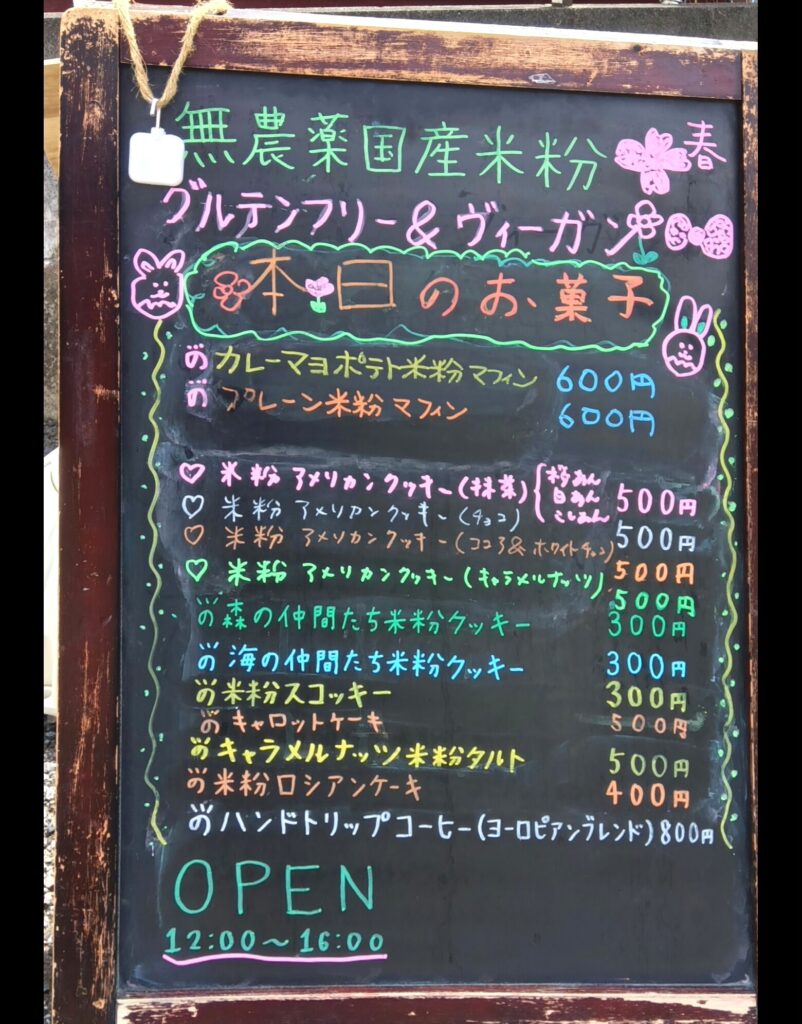 無農薬国産米粉 春
グルテンフリー&ヴィーガン
本日のお菓子
カレーマヨポテト米粉マフィン 600円
プレーン米粉マフィン 600円
米粉アメリカンクッキー(抹茶) 桜あん 白あん こしあん 500円
米粉アメリカンクッキー(チョコ) 500円
米粉アメリカンクッキー(ココア&ホワイトチョコ) 500円
米粉アメリカンクッキー(キャラメルナッツ) 500円
森の仲間たち米粉クッキー 300円
海の仲間たち米粉クッキー 300円
米粉スコッキー 300円
キャロットケーキ 500円
キャラメルナッツ米粉タルト 500円
米粉ロシアンケーキ 400円
ハンドトリップコーヒー(ヨーロピアンブレンド) 800円
OPEN
12:00〜16:00